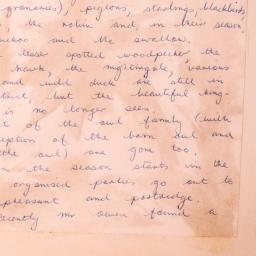 granaries), pigeons, starlings, blackbirds
, the robin and, in their season
cuckoo and the swallow.
lesser spotted woodpecker the
hawk, the nightingale, various
and wild duck are still in
district, but the beautiful king-
is no longer seen
t of the owl family (with
ception of the barn owl and
ttle owl) are gone too.
n the season starts in the
organised parties go out to
pheasant and partridge.
ecently mr owen found a